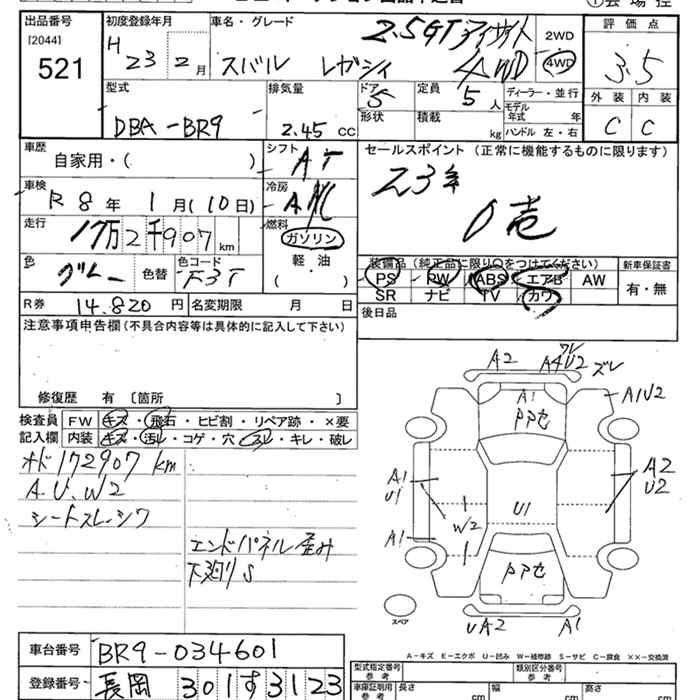 出品番号
[2044]
521
初度登録年月
H 23 2月
車名・グレード
2.5GTアイサイト
スバル レガシィ 4WD
2WD
4WD
評価点
3.5
外装 内装
C C
型式
DBA-BR9
排気量
2.45 CC
ドア 5
形状
定員 5人
積載 kg
ディーラー・並行
モデル年式 年
ハンドル 左・右
車歴
自家用・( )
シフト AT
車検
R 8年 1月(10日)
冷房 A/C
走行
17万2千907km
燃料
ガソリン
軽・油
( )
色 グレー 色替
色コード F3T
R券 14.820円
名変期限 月 日
セールスポイント(正常に機能するものに限ります)
23年
0壱
装備品(純正品に限り○をつけてください)
PS PW ABS エアB AW
SR ナビ TV カワ
新車保証書
有・無
後日品
注意事項申告欄(不具合内容等は具体的に記入して下さい)
修復歴 有〔箇所 〕
検査員記入欄
FW キズ・飛石・ヒビ割・リペア跡・×要
内装 キズ・汚レ・コゲ・穴・スレ・キレ・破レ
オド172907km
A.U.W2
シートスレ・シワ
エンドパネル歪み
下廻りS
A2
ワレ
A4U2 ズレ
A1
PPセ
A1U2
A1
U1
A2
U2
U1
W2
A1
PPセ
UA2
A1
スペア
A-キズ E-エクボ U-凹み W-補修跡 S-サビ C-腐食 ××-交換済
車台番号 BR9-034601
登録番号 長岡 301す3123
型式指定番号 参考
類別区分番号 参考
車庫証明用 参考
長さ cm 幅 cm 高さ cm